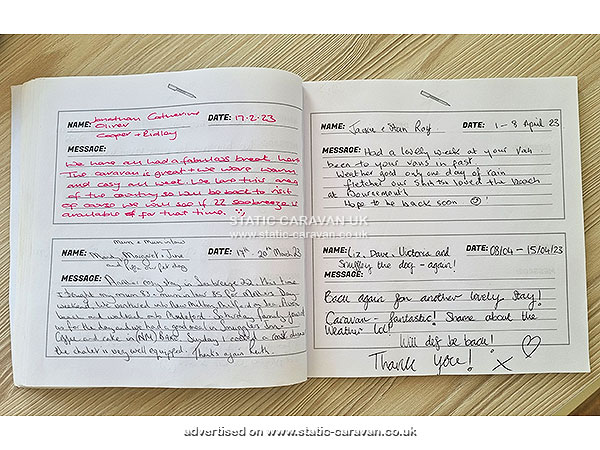 NAME: Jonathan Catherine
Oliver
Cooper + Ridley
DATE: 17.2.23
MESSAGE:
We have all had a fabulous break here
The caravan is great + we were warm
and cosy all week. We love this area
of the country so will be back to visit
of course we will see if 22 seabreeze is
available for that time.
Mum + Mum in law
NAME: Mandy, Margaret + June
and pet dog
DATE: 17th 20th March 23
MESSAGE: Another stay in Seabreeze 22. This time
I brought my mum 83 + mum in law 85 for Mothers Day
weekend. We ventured into New Milton
and walked into Saturday family joined
us for the day and we had a good meal in Smugglers Inn.
Coffee and cake in Sunday I cooked a roast dinner
the chalet is very well equipped. Thanks again Keith.
NAME: Janice + Stan Roy
DATE: 1 - 8 April 23
MESSAGE: Had a lovely week at your van
been to your vans in past.
Weather good only one day of rain
fletcher our Shih tzu loved the beach
at Bournemouth
Hope to be back soon
NAME: Liz, Dave, Victoria and
Snuffley the dog - again!
DATE: 08/04 - 15/04/23
MESSAGE:
Back again for another lovely stay!
Caravan - fantastic! Shame about the
weather lol!
Will def be back!
Thank You! X
STATIC-CARAVAN.UK
www.static-caravan.co.uk
advertised on www.static-caravan.co.uk